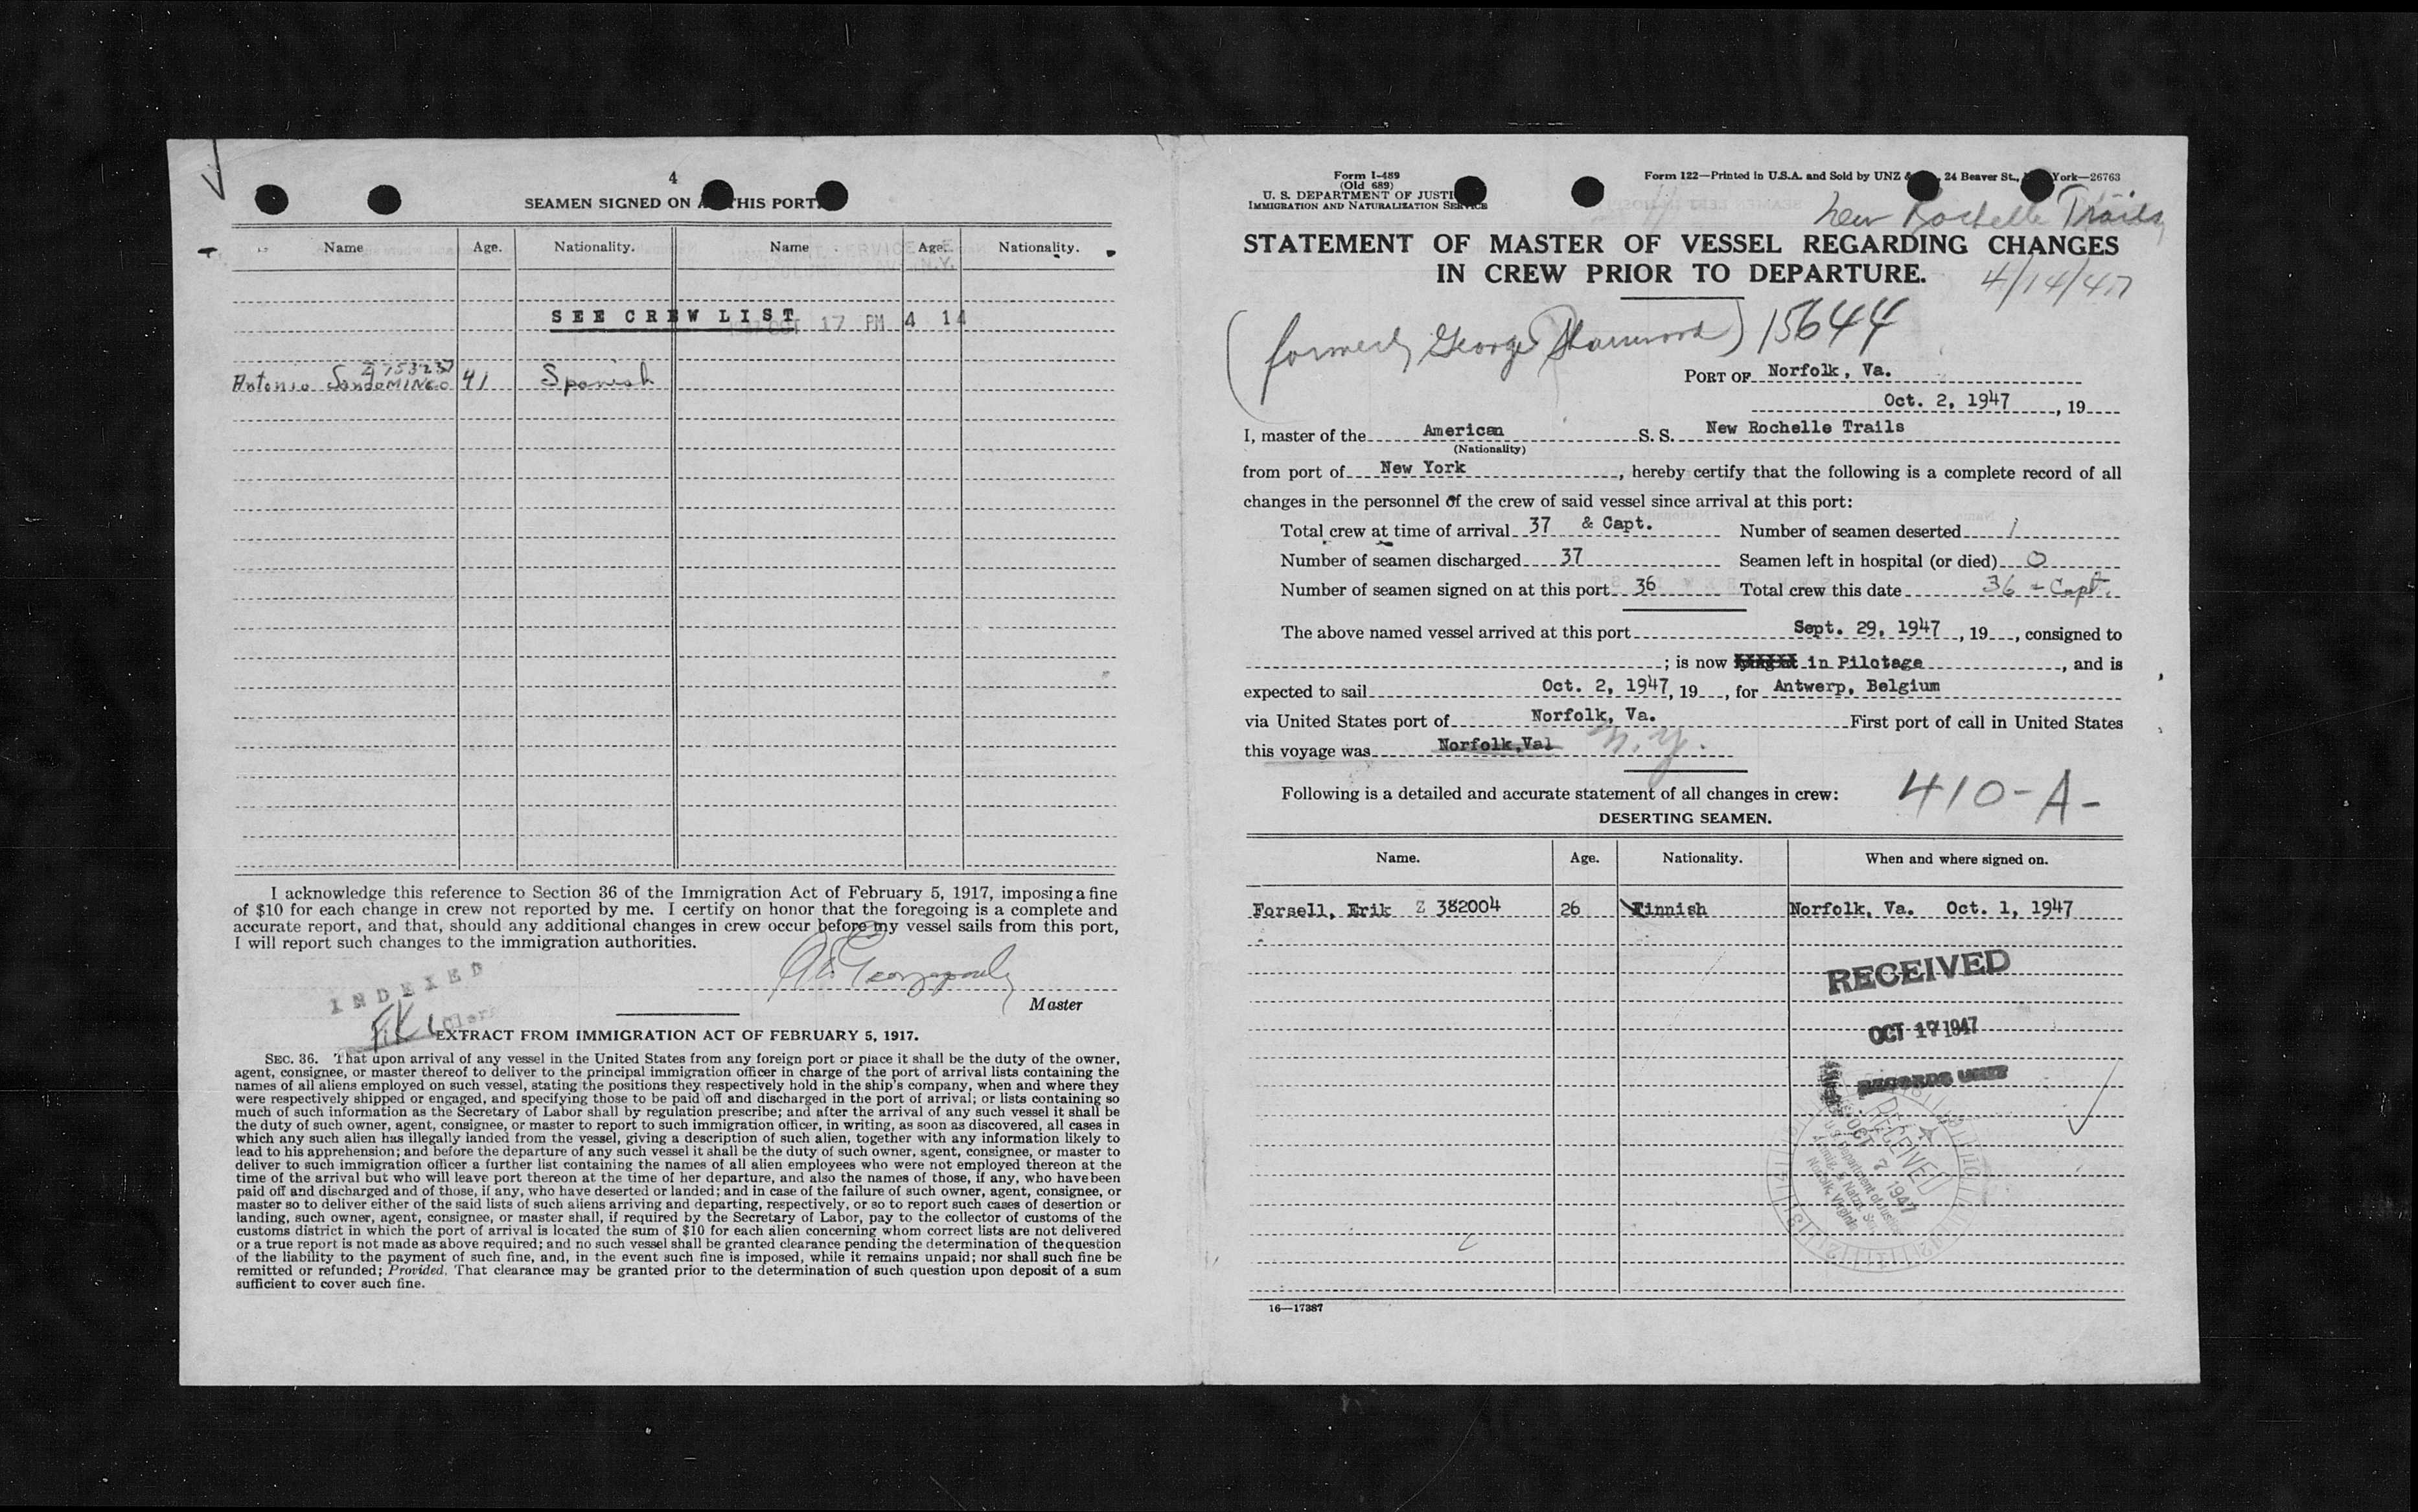 4
SEAMEN SIGNED ON A THIS PORT.
Name Age. Nationality. Name Age. Nationality.
SEE CREW LIST
OCT 17 PM 4 14
Z 753237
Antonio SandoMINGO 41 Spanish
I acknowledge this reference to Section 36 of the Immigration Act of February 5, 1917, imposing a fine
of $10 for each change in crew not reported by me. I certify on honor that the foregoing is a complete and
accurate report, and that, should any additional changes in crew occur before my vessel sails from this port,
I will report such changes to the immigration authorities.
INDEXED
Clerk
Master
EXTRACT FROM IMMIGRATION ACT OF FEBRUARY 5, 1917.
SEC. 36. That upon arrival of any vessel in the United States from any foreign port or place it shall be the duty of the owner,
agent, consignee, or master thereof to deliver to the principal immigration officer in charge of the port of arrival lists containing the
names of all aliens employed on such vessel, stating the positions they respectively hold in the ship's company, when and where they
were respectively shipped or engaged, and specifying those to be paid off and discharged in the port of arrival; or lists containing so
much of such information as the Secretary of Labor shall by regulation prescribe; and after the arrival of any such vessel it shall be
the duty of such owner, agent, consignee, or master to report to such immigration officer, in writing, as soon as discovered, all cases in
which any such alien has illegally landed from the vessel, giving a description of such alien, together with any information likely to
lead to his apprehension; and before the departure of any such vessel it shall be the duty of such owner, agent, consignee, or master to
deliver to such immigration officer a further list containing the names of all alien employees who were not employed thereon at the
time of the arrival but who will leave port thereon at the time of her departure, and also the names of those, if any, who have been
paid off and discharged and of those, if any, who have deserted or landed; and in case of the failure of such owner, agent, consignee, or
master so to deliver either of the said lists of such aliens arriving and departing, respectively, or so to report such cases of desertion or
landing, such owner, agent, consignee, or master shall, if required by the Secretary of Labor, pay to the collector of customs of the
customs district in which the port of arrival is located the sum of $10 for each alien concerning whom correct lists are not delivered
or a true report is not made as above required; and no such vessel shall be granted clearance pending the determination of the question
of the liability to the payment of such fine, and, in the event such fine is imposed, while it remains unpaid; nor shall such fine be
remitted or refunded; Provided, That clearance may be granted prior to the determination of such question upon deposit of a sum
sufficient to cover such fine.
Form I-489
(Old 689)
U. S. DEPARTMENT OF JUSTI
IMMIGRATION AND NATURALIZATION SERVICE
Form 122—Printed in U.S.A. and Sold by UNZ & 24 Beaver St., York—26763
New Rochelle Trails
STATEMENT OF MASTER OF VESSEL REGARDING CHANGES
IN CREW PRIOR TO DEPARTURE.
4/14/47
(formerly George) 15644
PORT OF Norfolk, Va.
Oct. 2, 1947, 19
I, master of the American S. S. New Rochelle Trails
(Nationality)
from port of New York, hereby certify that the following is a complete record of all
changes in the personnel of the crew of said vessel since arrival at this port:
Total crew at time of arrival 37 & Capt. Number of seamen deserted 1
Number of seamen discharged 37 Seamen left in hospital (or died) 0
Number of seamen signed on at this port 36 Total crew this date 36 - Capt.
The above named vessel arrived at this port Sept. 29, 1947, 19, consigned to
; is now in Pilotage, and is
expected to sail Oct. 2, 1947, 19, for Antwerp, Belgium
via United States port of Norfolk, Va. First port of call in United States
this voyage was Norfolk,Val N.Y.
Following is a detailed and accurate statement of all changes in crew:
410-A-
DESERTING SEAMEN.
Name. Age. Nationality. When and where signed on.
Forsell, Erik Z 382004 26 Finnish Norfolk, Va. Oct. 1, 1947
RECEIVED
OCT 17 1947
RECORDS UNIT
RECEIVED
OCT 7 1947
U.S. Department of Justice
Immig. & Natzn. Ser.
Norfolk, Virginia
16—17387